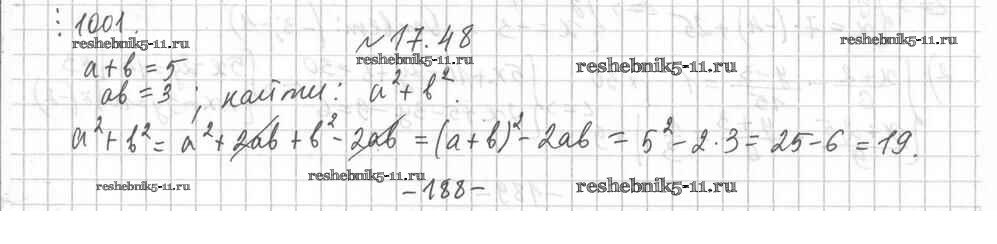 : 1001.
reshebnik5-11.ru
№ 17.48
reshebnik5-11.ru
reshebnik5-11.ru
reshebnik5-11.ru
a+b=5
ab=3 ; найти: a²+b².
a²+b²= a²+2ab+b²-2ab = (a+b)²-2ab = 5²-2·3= 25-6 =19.
reshebnik5-11.ru
reshebnik5-11.ru
reshebnik5-11.ru
-188-